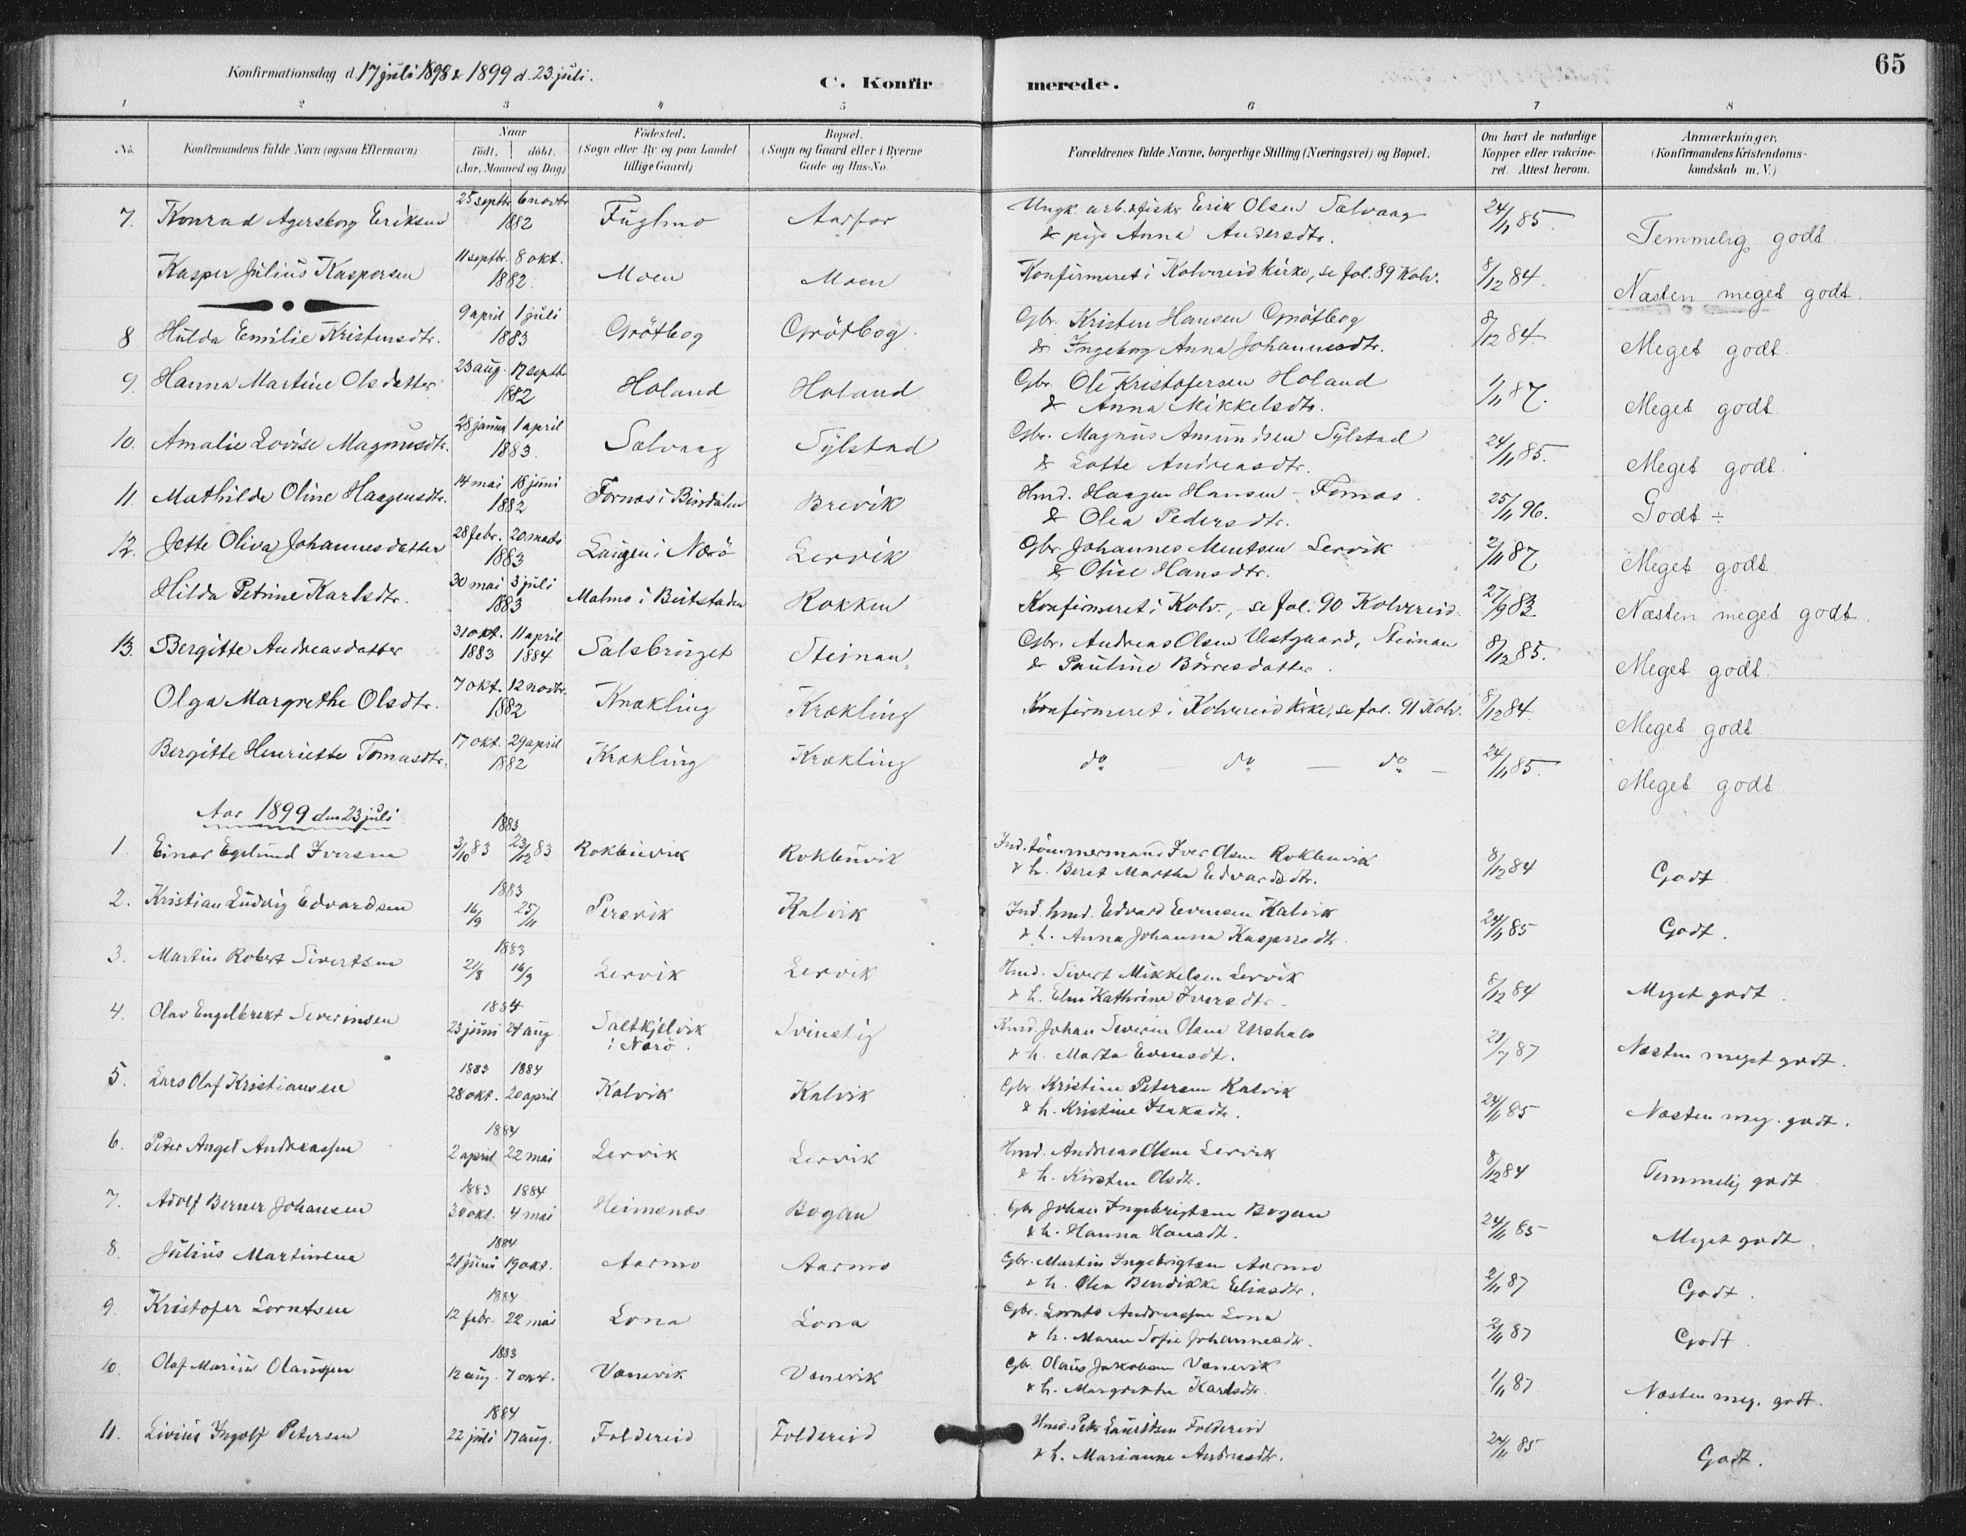 Konfirmationsdag d. 17 juli 1898 & 1899 d. 23 juli.
C. Konfirmerede.
65
1 2 3 4 5 6 7 8
No. Konfirmandens fulde Navn (ogsaa Efternavn) Naar födt. döbt. (Aar, Maaned og Dag) Födested. (Sogn eller By og paa Landet tillige Gaard) Bopæl. (Sogn og Gaard eller i Byerne Gade og Hus-No. Forældrenes fulde Navne, borgerlige Stilling (Næringsvei) og Bopæl. Om havt de naturlige Kopper eller vakcineret. Attest herom. Anmærkninger. (Konfirmandens Kristendomskundskab m. V.)
7. Konrad Agersborg Eriksen 25 septbr. 6 novbr. 1882 Fuglmo Aarfor Ungk. arb. & fisker Erik Olsen Salvaag & pige Anna Andersdtr. 24/11 85. Temmelig godt
Kasper Julius Kaspersen 11 septbr. 8 okt. 1882. Moen Moen Konfirmeret i Kolvereid kirke, se fol. 89 Kolv. 8/12 84. Næsten meget godt.
8 Hulda Emilie Kristensdtr. 9 april 1 juli 1883 Grötbog Grötbog. Gbr. Kristen Hansen Grøtbog & Ingeborg Anna Johannesdtr. 8/12 84 Meget godt.
9. Hanna Martine Olsdatter 23 aug. 17 septbr. 1882 Holand Holand Gbr. Ole Kristofersen Holand & Anna Mikkelsdtr. 1/11 87. Meget godt.
10. Amalie Lovise Magnusdtr. 28 januar 1 april 1883. Salvaag Sylstad Gbr. Magnus Amundsen Sylstad & Lotte Andreasdtr. 24/11 85. Meget godt.
11. Mathilde Oline Haagensdtr. 14 mai 18 juni 1882 Fornæs i Bindalen Brevik Hmd. Haagen Hansen - Fornæs. & Olea Pedersdtr. 25/11 96. Godt ÷
12. Jette Oliva Johannesdatter 28 febr. 20 marts 1883 Laugen i Nærö Lervik Gbr. Johannes Mentsen Lervik & Olise Hansdtr. 2/11 87 Meget godt.
Hilda Petrine Karlsdtr. 30 mai 3 juli 1883 Malmo i Beitstaden Rokken Konfirmeret i Kolv., se fol. 90 Kolvereid. 27/9 83 Næsten meget godt.
13. Bergitte Andreasdatter 31 okt. 1883 11 april 1884 Salsbruget Steinan. Gbr. Andreas Olsen Vestgaard, Steinan & Pauline Börresdatter. 8/12 85. Meget godt.
Olga Margrethe Olsdtr. 7 okt. 12 novbr. 1882 Krækling Krækling Konfirmeret i Kolvereid kirke, se fol. 91 Kolv. 8/12 84. Meget godt.
Bergitte Henriette Tomasdtr. 17 okt. 29 april 1882 Krækling Krækling do — do — do — 24/11 85. Meget godt.
Aar 1899 den 23 juli
1. Einar Egelund Iversen 1883 3/10 83 23/12 83 Rokbuvik Rokbuvik Ind. tömmermand Iver Olsen Rokbuvik & h. Beret Martha Edvardsdtr. 8/12 84 Godt
2. Kristian Ludvig Edvardsen 1883 16/9 25/11 Persvik Kalvik Ind. hmd. Edvard Evensen Kalvik & h. Anna Johanna Kaspersdtr. 24/11 85 Godt.
3. Martin Robert Sivertsen 1883 21/8 16/9 Lervik Lervik Hmd. Sivert Mikkelsen Lervik & h. Elen Kathrine Iversdtr. 8/12 84 Meget godt.
4. Olav Engelbrekt Severinsen 1884 23 juni 24 aug. Saltkjelvik i Nærö. Svinstig Hmd. Johan Severin Olsen & h. Marta Evensdt. 21/7 87 Næsten meget godt.
5. Lars Olaf Kristiansen 1883 1884 28 okt. 20 april Kalvik Kalvik Gbr. Kristian Petersen Kalvik & h. Kristine Isaksdtr. 24/11 85 Næsten meg. godt.
6. Peter Angel Andreassen 1884 2 april 22 mai Lervik Lervik Hmd. Andreas Olsen Lervik & h. Kirsten Olsdt. 8/12 84 Temmelig godt
7. Adolf Berner Johansen 1883 1884 30 okt. 4 mai Heimenæs Bogan Gbr. Johan Ingebrigtsen Bogan & h. Hanna Hansdt. 24/11 85 Meget godt.
8. Julius Martinsen 1884 21 juni 19 okt. Aarmo Aarmo Gbr. Martin Ingebrigtsen Aarmo & h. Olea Bendikke Eliasdtr. 2/11 87 Godt.
9. Kristofer Lorntsen 1884 12 febr. 22 mai Lona Lona Gbr. Lornts Andreassen Lona & h. Maren Sofie Johannesdtr. 2/11 87 Godt.
10. Olaf Marius Olaussen 1883 12 aug. 7 okt. Vanevik Vanevik Gbr. Olaus Jakobsen Vanevik & h. Margrethe Karlsdtr. 1/11 87 Næsten meg. godt.
11. Livius Ingolf Petersen 1884 22 juli 17 aug. Foldereid Foldereid Hmd. Peter Lauritsen Foldereid & h. Marianne Andreasdtr. 24/11 85 Godt.